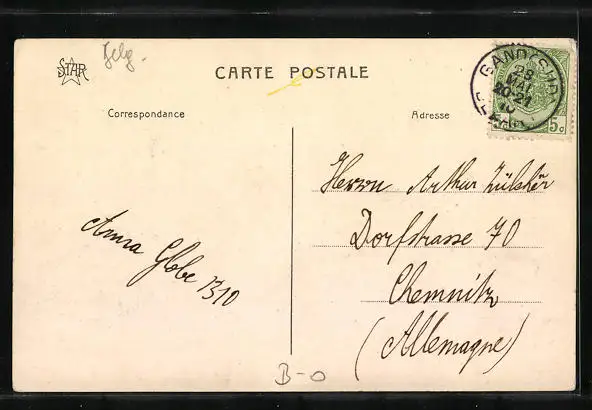 STAR
Belg.
CARTE POSTALE
Correspondance
Adresse
GAND
28
20-21
10
5c
Herrn Arthur
Dorfstrasse 70
Chemnitz
(Allemagne)
Anna Globe 1310
B-0